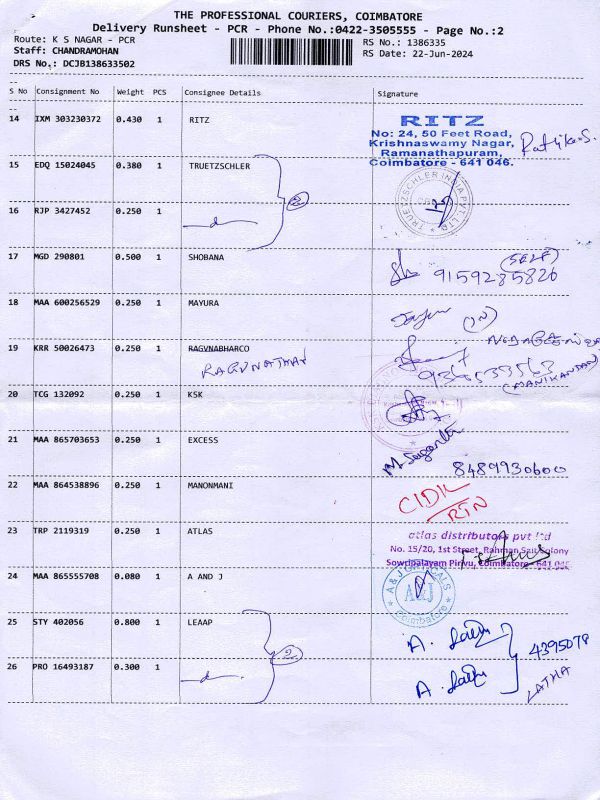 THE PROFESSIONAL COURIERS, COIMBATORE
Delivery Runsheet - PCR - Phone No.:0422-3505555 - Page No.:2
Route: K S NAGAR - PCR
RS No.: 1386335
Staff: CHANDRAMOHAN
RS Date: 22-Jun-2024
DRS No.: DCJB138633502
S No Consignment No Weight PCS Consignee Details Signature
14 IXM 303230372 0.430 1 RITZ
RITZ
No: 24, 50 Feet Road,
Krishnaswamy Nagar,
Ramanathapuram,
Coimbatore - 641 046.
15 EDQ 15024045 0.380 1 TRUETZSCHLER
2
TRUETZSCHLER INDIA PVT. LTD
16 RJP 3427452 0.250 1
17 MGD 290801 0.500 1 SHOBANA
(SELF)
9159285826
18 MAA 600256529 0.250 1 MAYURA
19 KRR 50026473 0.250 1 RAGVNABHARCO
RAGUNATHAN
(MANIKANDAN)
20 TCG 132092 0.250 1 KSK
21 MAA 865703653 0.250 1 EXCESS
8489930600
22 MAA 864538896 0.250 1 MANONMANI
RTN
23 TRP 2119319 0.250 1 ATLAS
atlas distributors pvt ltd
No. 15/20, 1st Street, Rahman Sait Colony
Sowripalayam Pirivu, Coimbatore - 641 045
24 MAA 865555708 0.080 1 A AND J
A & J
Coimbatore
25 STY 402056 0.800 1 LEAAP
2
4395079
26 PRO 16493187 0.300 1
LATHA